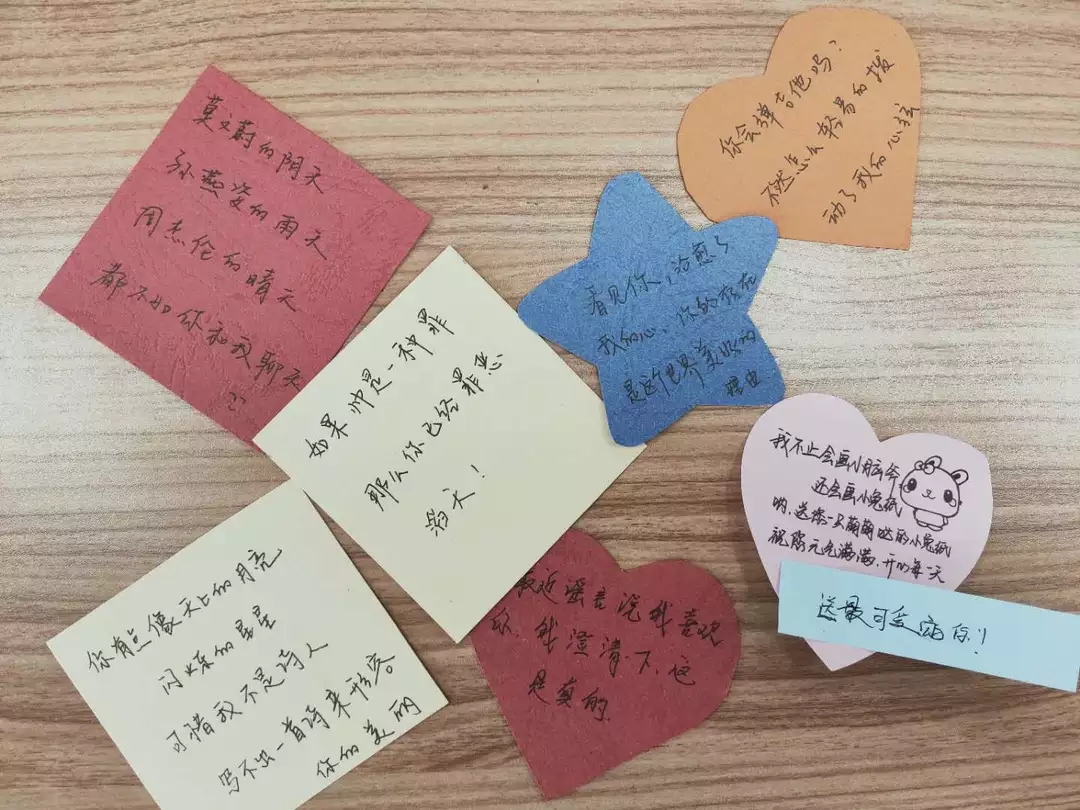 莫文蔚的阴天
孙燕姿的雨天
周杰伦的晴天
都不如你和我聊天
你会弹吉他吗?
不然怎么轻易的拨
动了我的心弦
看见你,治愈了
我的心、你的存在
是这个世界美好的
理由
如果帅是一种罪
那么你已经罪恶
滔天!
我不止会画小
还会画小兔纸
哟,送你一只萌萌哒的小兔纸
祝你元气满满,开心每一天
送最可爱的你!
最近谣言说我喜欢
你,我澄清一下,这
是真的.
你有点像天上的月亮
闪烁的星星
可惜我不是诗人
写不出一首诗来形容
你的美丽